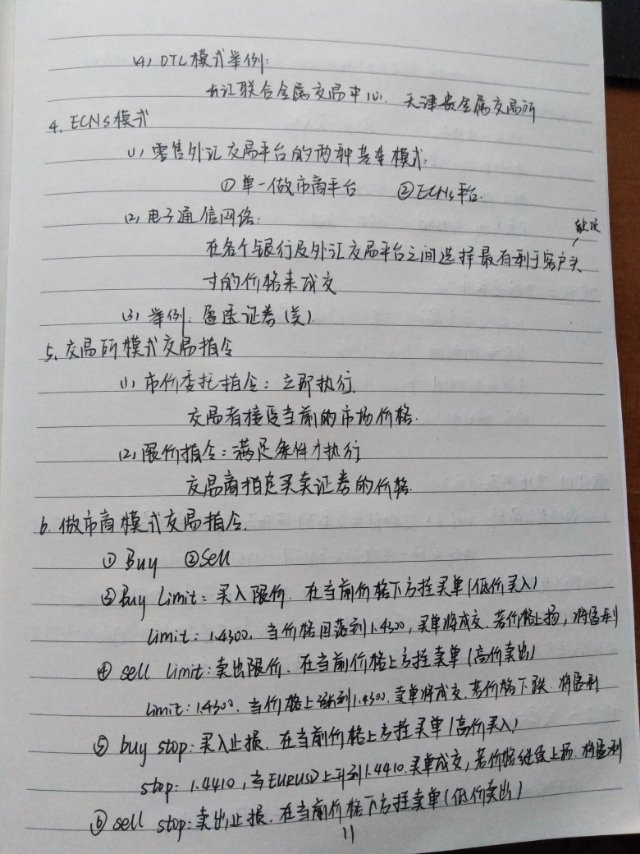 (4) OTC模式举例:
长江联合金属交易中心、天津贵金属交易所
4. ECNs模式
(1) 零售外汇交易平台的两种基本模式:
①单一做市商平台 ②ECNs平台.
(2) 电子通信网络:
在各个与银行及外汇交易平台之间选择最有利于客户头
寸的价格来成交
(3) 举例: 盈透证券(美).
5. 交易所模式交易指令
(1) 市价委托指令: 立即执行
交易者接受当前的市场价格.
(2) 限价指令: 满足条件才执行
交易商指定买卖证券的价格.
6. 做市商模式交易指令.
① Buy ②Sell
③ Buy Limit: 买入限价. 在当前价格下方挂买单(低价买入)
Limit: 1.4300, 当价格回落到1.4300, 买单将成交. 若价格上扬, 将盈利
④ sell limit: 卖出限价. 在当前价格上方挂卖单(高价卖出)
Limit: 1.4300. 当价格上涨到1.4300. 卖单将成交. 若价格下跌. 将盈利
⑤ buy stop: 买入止损. 在当前价格上方挂买单(高价买入)
stop: 1.4410, 当EURUSD上升到1.4410. 买单成交, 若价格继续上扬. 将盈利
⑥ sell stop: 卖出止损. 在当前价格下方挂卖单(低价卖出)
11